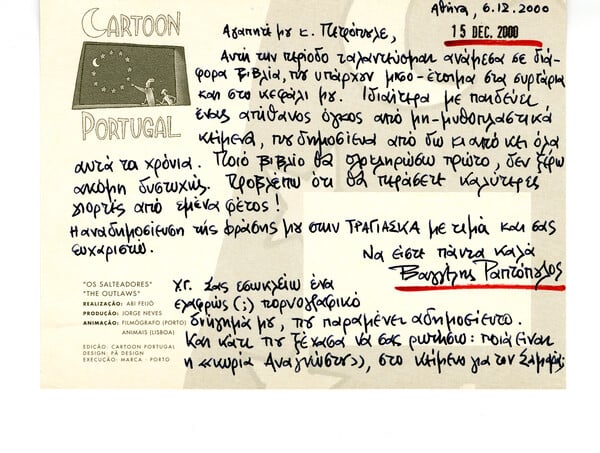 CARTOON
PORTUGAL
Αθήνα, 6.12.2000
15 DEC. 2000
Αγαπητέ μου κ. Πετρόπουλε,
Αυτή την περίοδο ταλαντεύομαι ανάμεσα σε διά-
φορα βιβλία, που υπάρχουν μισο-έτοιμα στα συρτάρια
και στο κεφάλι μου. Ιδιαίτερα με παιδεύει
ένας απίθανος όγκος από μη-μυθοπλαστικά
κείμενα, που δημοσίευα από δω κι από κει όλα
αυτά τα χρόνια. Ποιό βιβλίο θα ολοκληρώσω πρώτο, δεν ξέρω
ακόμη δυστυχώς. Προβλέπω ότι θα περάσετε καλύτερες
γιορτές από εμένα φέτος!
Η αναδημοσίευση της φράσης μου στην ΤΡΑΓΙΑΣΚΑ με τιμά και σας
ευχαριστώ.
Να είστε πάντα καλά
Βαγγέλης Ραπτόπουλος
"OS SALTEADORES"
"THE OUTLAWS"
REALIZAÇÃO: ABI FEIJÓ
PRODUÇÃO: JORGE NEVES
ANIMAÇÃO: FILMÓGRAFO (PORTO)
ANIMAIS (LISBOA)
EDIÇÃO: CARTOON PORTUGAL
DESIGN: PÃ DESIGN
EXECUÇÃO: MARCA - PORTO
Υ.Γ. Σας εσωκλείω ένα
ελαφρώς (;) πορνογραφικό
διήγημά μου, που παραμένει αδημοσίευτο.
Και κάτι που ξέχασα να σας ρωτήσω: ποιά είναι
η «κυρία Αναγνώστου», στο κείμενο για τον